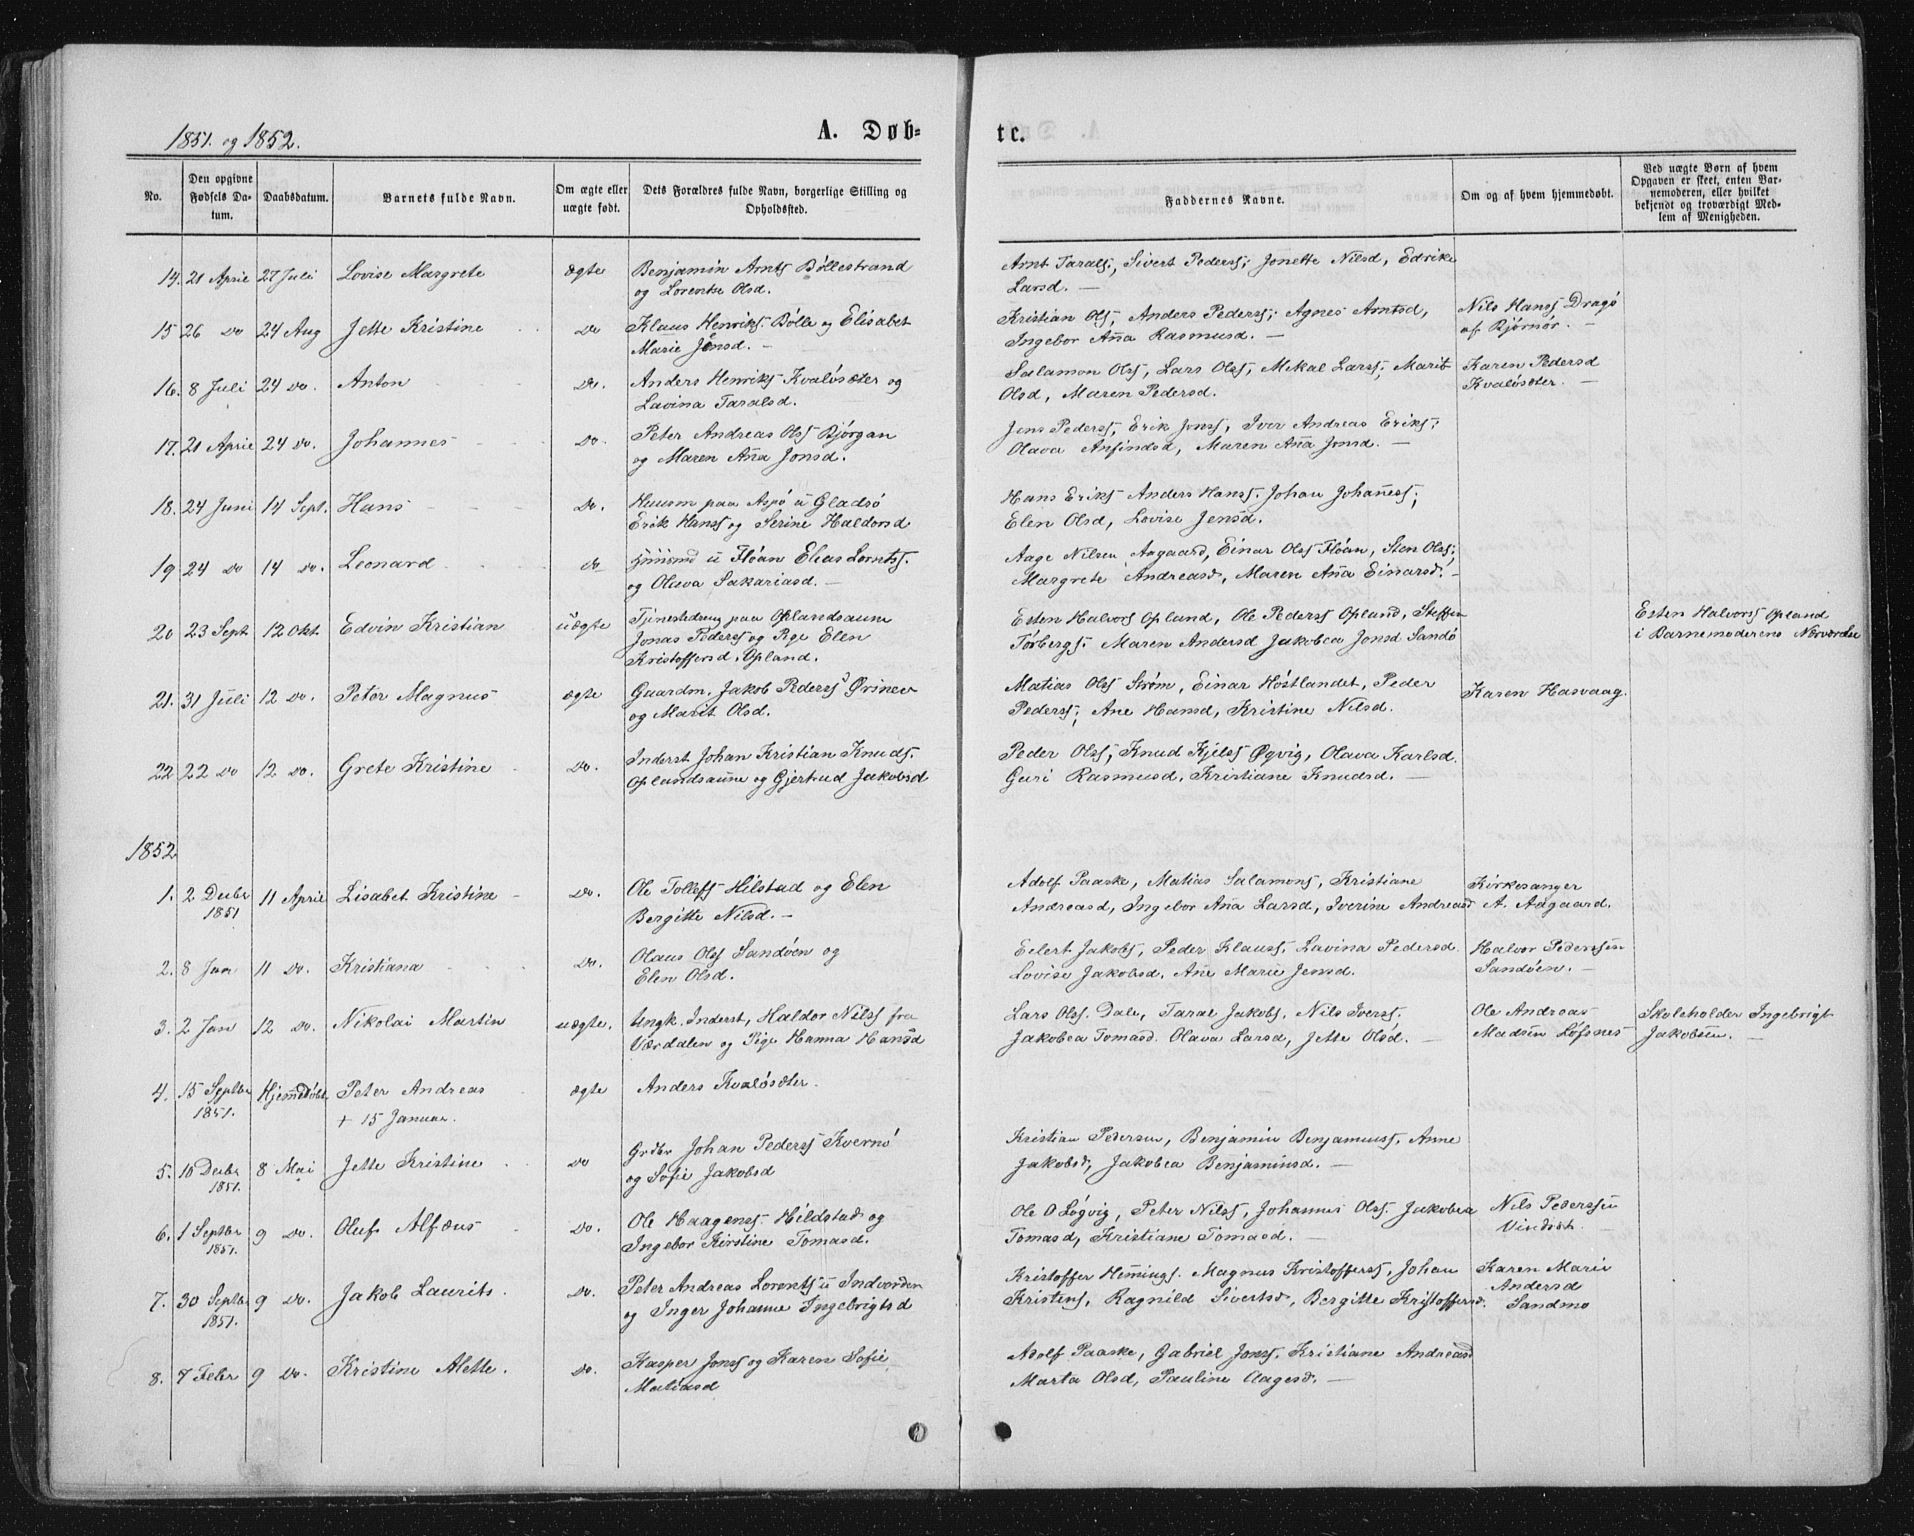 1851. og 1852.
A. Døb-
te.
No.
Den opgivne
Fødsels Da-
tum.
Daabsdatum.
Barnets fulde Navn.
Om ægte eller
uægte født.
Dets Forældres fulde Navn, borgerlige Stilling og
Opholdssted.
Faddernes Navne.
Om og af hvem hjemmedøbt.
Ved uægte Børn af hvem
Opgaven er skeet, enten Bar-
nemoderen, eller hvilket
bekjendt og troværdigt Med-
lem af Menigheden.
14. 21 April 27 Juli Lovise Margrete ægte Benjamin Arnts Bøllestrand
og Lorentse Olsd.
Arnt Tarals, Sivert Pederss, Jonette Nilsd, Edrike
Larsd. —
15 26 do 24 Aug Jette Kristine do Klaus Henriks. Bølle og Elisabet
Marie Jensd. —
Kristian Ols, Anders Pederss, Agnes Arntsd,
Ingebor Aña Rasmusd. —
Nils Hanss Dragø
af Bjørnør. —
16. 8 Juli 24 do. Anton do. Anders Henriks Kvaløsæter og
Lavina Taralsd.
Salamon Olss, Lars Olss, Mekal Larss, Marit
Olsd, Maren Pedersd.
Karen Pedersd
Kvaløsæter. —
17. 21 April 24 do. Johannes do. Peter Andreas Olss Bjørgan
og Maren Aña Jonsd.
Jens Pederss, Erik Jonss, Iver Andreas Eriks;
Olava Anfindsd, Maren Aña Jonsd. —
18. 24 Juni 14 Sept. Hans do. Huusm paa Aspø u Gladsø
Erik Hanss og Serine Haldorsd
Hans Eriks Anders Hanss. Johan Johañess;
Elen Olsd, Lovise Jensd.
19 24 do 14 do. Leonard do u Fløan Elias Lornts.
og Olava Sakariasd. —
Aage Nilsen Aagaard, Einar Olss Fløan, Sten Olss;
Margrete Andreasd, Maren Aña Einarsd. —
20 23 Sept 12 Okt. Edvin Kristian uægte Tjenestedreng paa Oplandsaune
Jonas Pederss og Pige Elen
Kristoffersd. Opland.
Esten Halvors Opland, Ole Pederss Opland, Steffen
Torbergs. Maren Andersd Jakobea Jonsd Sandø
Esten Halvors Opland
i Barnemoderens Nærværelse
21. 31 Juli 12 do. Peter Magnus ægte Gaardm. Jakob Pederss Ørinev
og Marit Olsd.
Matias Olss Strøm, Einar Høstlandet, Peder
Pederss, Ane Hansd, Kristine Nilsd.
Karen Hasvaag.
22 22 do 12 do. Grete Kristine do. Inderst Johan Kristian Knuds.
Oplandsaune og Gjertrud Jakobsd
Peder Olss, Knud Kjelss Øqvig, Olava Karlsd.
Guri Rasmusd, Kristiane Knudsd. —
1852
1. 2 Decbr
1851 11 April Lisabet Kristine do. Ole Tollefs Hilstad og Elen
Bergitte Nilsd. —
Adolf Paaske, Matias Salamons, Kristiane
Andreasd, Ingebor Aña Larsd, Iverine Andreasd
Kirkesanger
A. Aagaard.
2. 8 Jan 11 do. Kristiana do. Olaus Olss Sandøen og
Elen Olsd.
Eilert Jakobs, Peder Klauss, Lavina Pedersd
Lovise Jakobsd, Ane Marie Jensd.
Halvor Pederssen
Sandøen. —
3. 2 Jan 12 do. Nikolai Martin uægte. Ungk. Inderst, Haldor Nilss fra
Værdalen og Pige Hanna Hansd
Lars Olss. Dale, Taral Jakobs, Nils Iverss.
Jakobea Tomasd. Olava Larsd, Jette Olsd. —
Ole Andreas
Madsen Løfsnes
Skoleholder Ingebrigt
Jakobsen. —
4. 15 Septbr
1851. Hjemmedøbt Peter Andreas
+ 15 Januar.
ægte Anders Kvaløsæter.
5. 10 Decbr
1851. 8 Mai Jette Kristine do Grdbr Johan Pederss Kvernø
og Sofie Jakobsd
Kristian Pedersen, Benjamin Benjamins, Anne
Jakobsd, Jakobea Benjaminsd. —
6. 1 Septbr
1851. 9 do. Oluf Alfæus do. Ole Haagenss. Hildstad og
Ingebor Kirstine Tomasd.
Ole O Løgvig, Peter Nilss, Johannes Olss. Jakobea
Tomasd, Kristiane Tomasd. —
Nils Pederssen
7. 30 Septbr
1851. 9 do. Jakob Laurits. do. Peter Andreas Lorents u Indvorden
og Inger Johanne Ingebrigtsd
Kristoffer Henings. Magnus Kristofferss, Johan
Kristens, Ragnild Sivertsd, Bergitte Kristoffersd.
Karen Marie
Andersd
Sandmo
8. 7 Febr 9 do. Kristine Alette. do. Kasper Jonss og Karen Sofie
Matiasd
Adolf Paaske, Gabriel Jonss, Kristiane Andreasd
Marta Olsd, Pauline Aagesd. —